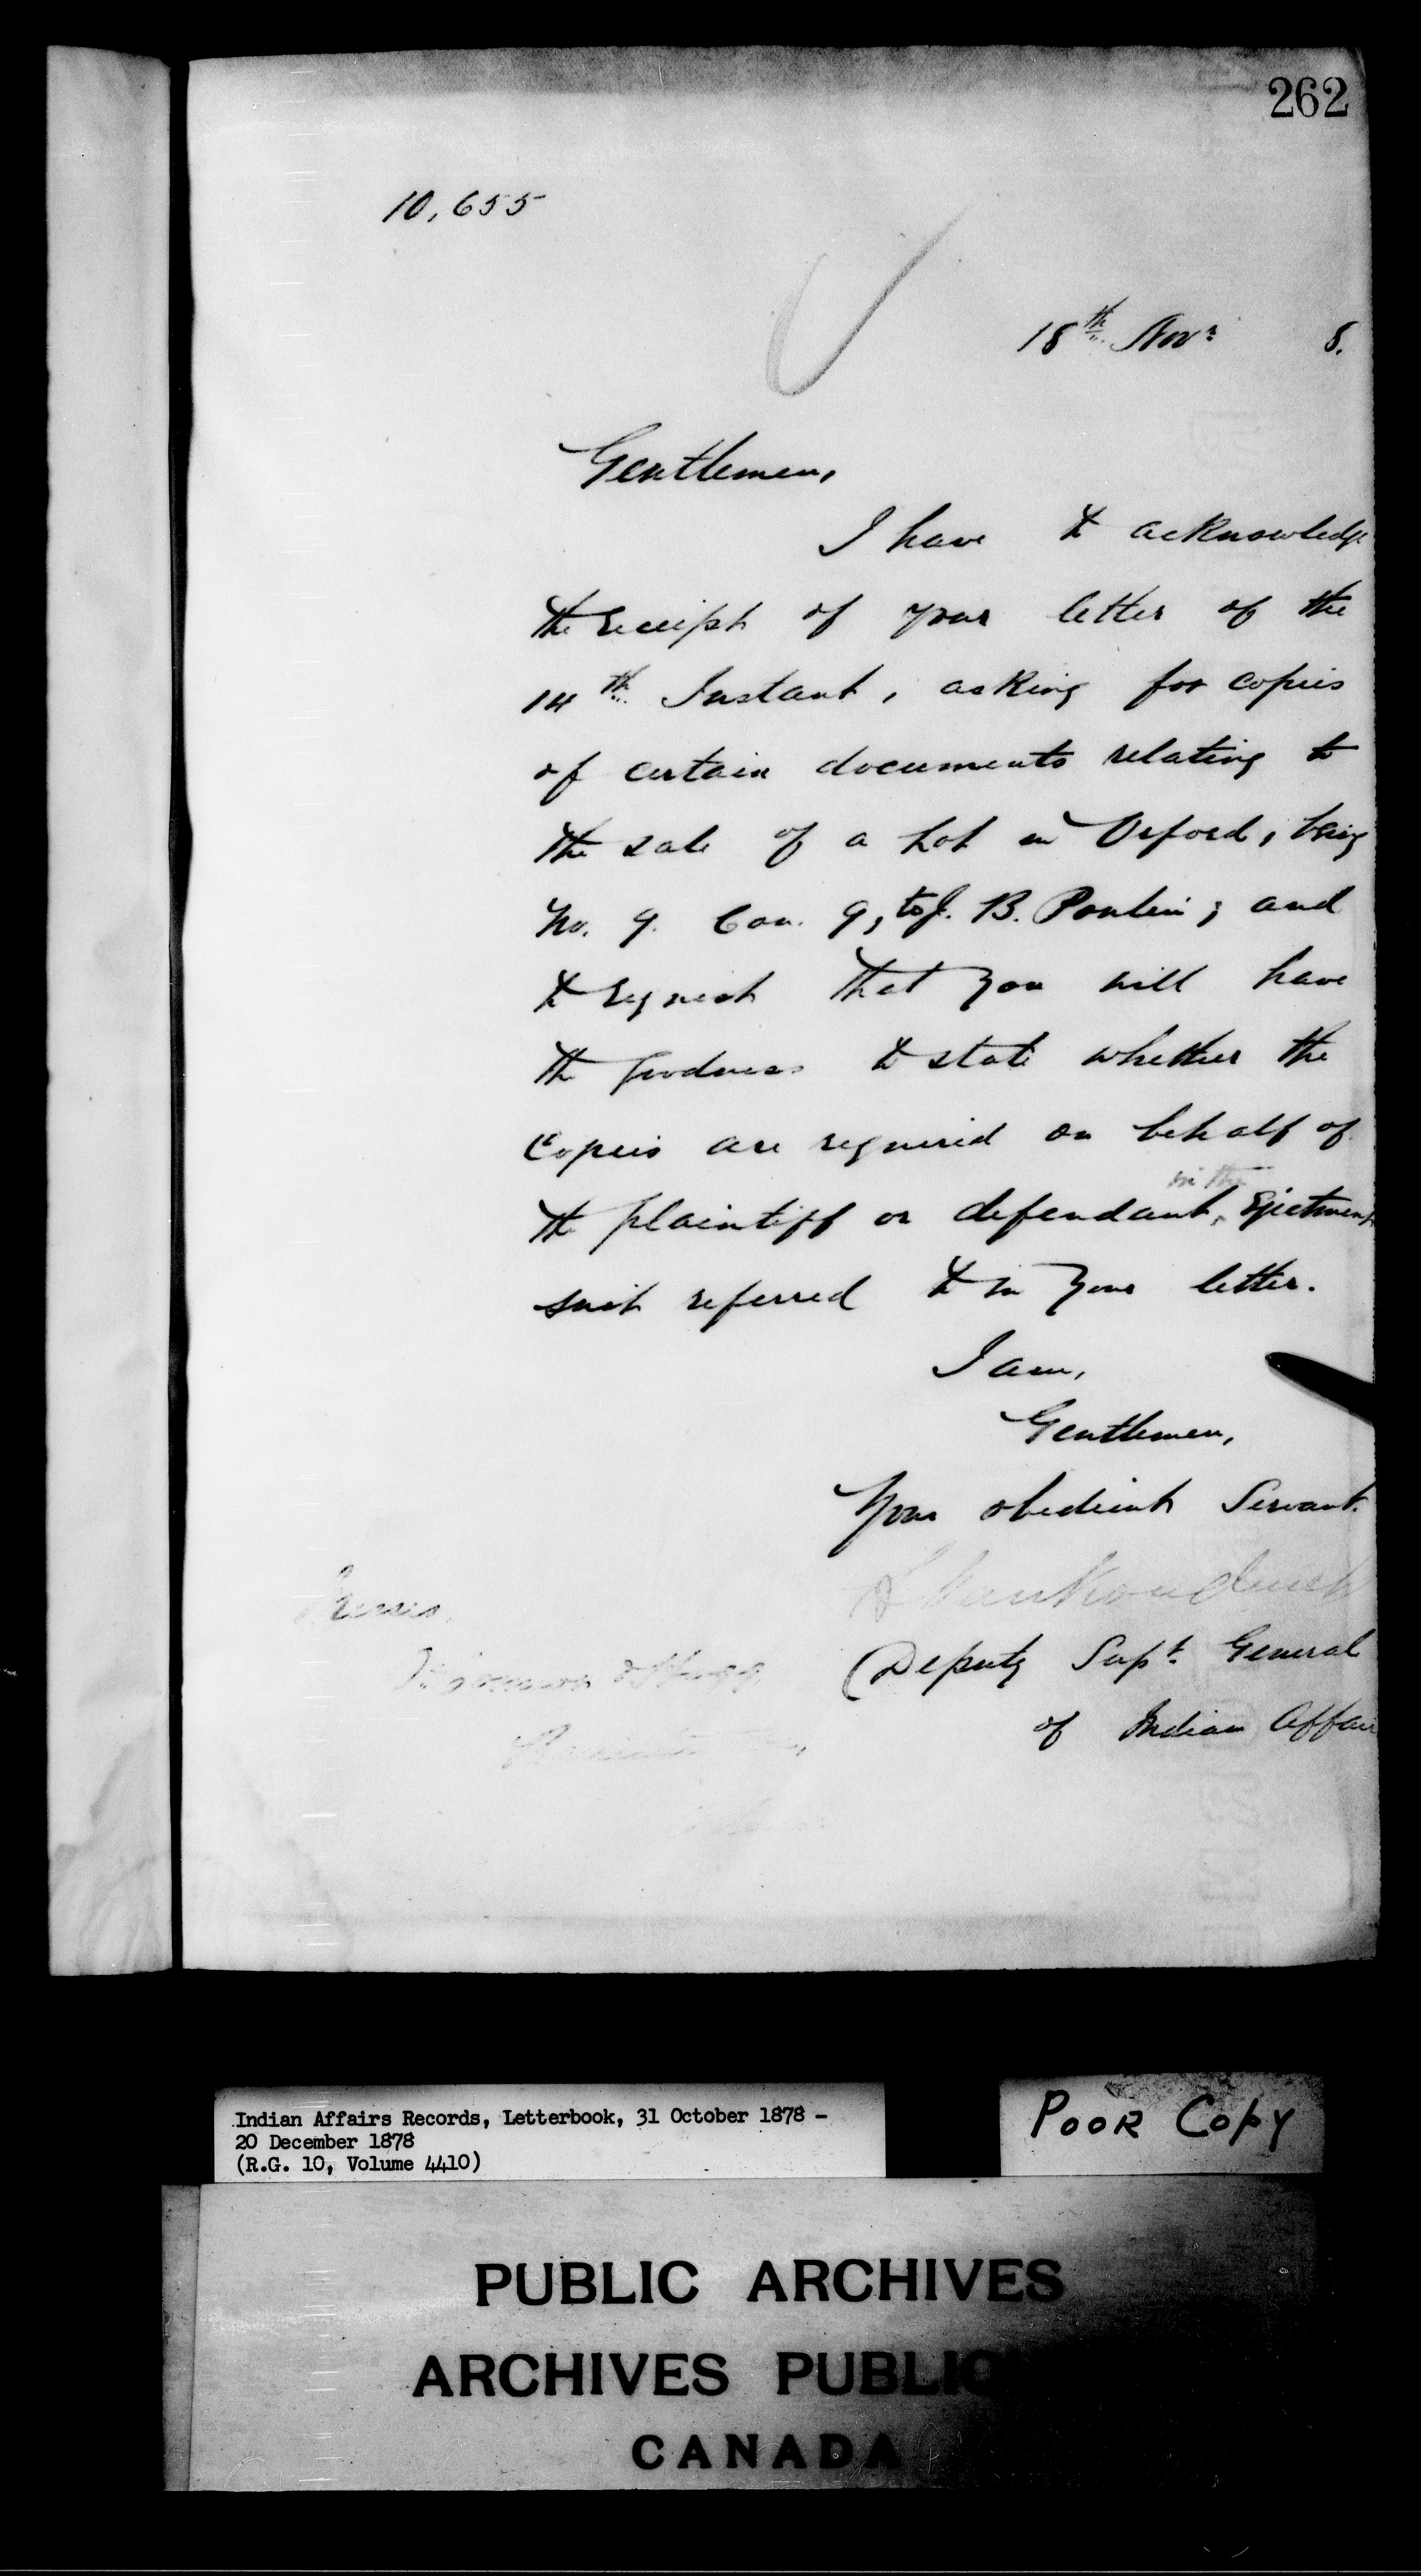 262
10,655
18th Novr 8.
Gentlemen,
I have to acknowledge
the receipt of your letter of the
14th Instant, asking for copies
of certain documents relating to
the sale of a Lot in Orford, being
No. 9. Con. 9, to J. B. Poulin; and
to request that you will have
the goodness to state whether the
Copies are required on behalf of
in the
the plaintiff or defendant, Ejectment
suit referred to in your letter.
I am,
Gentlemen,
Your obedient Servant.
L Vankoughnet
Messrs.
Deputy Supt. General
of Indian Affairs
Indian Affairs Records, Letterbook, 31 October 1878 -
20 December 1878
(R.G. 10, Volume 4410)
POOR COPY
PUBLIC ARCHIVES
ARCHIVES PUBLIQ
CANADA